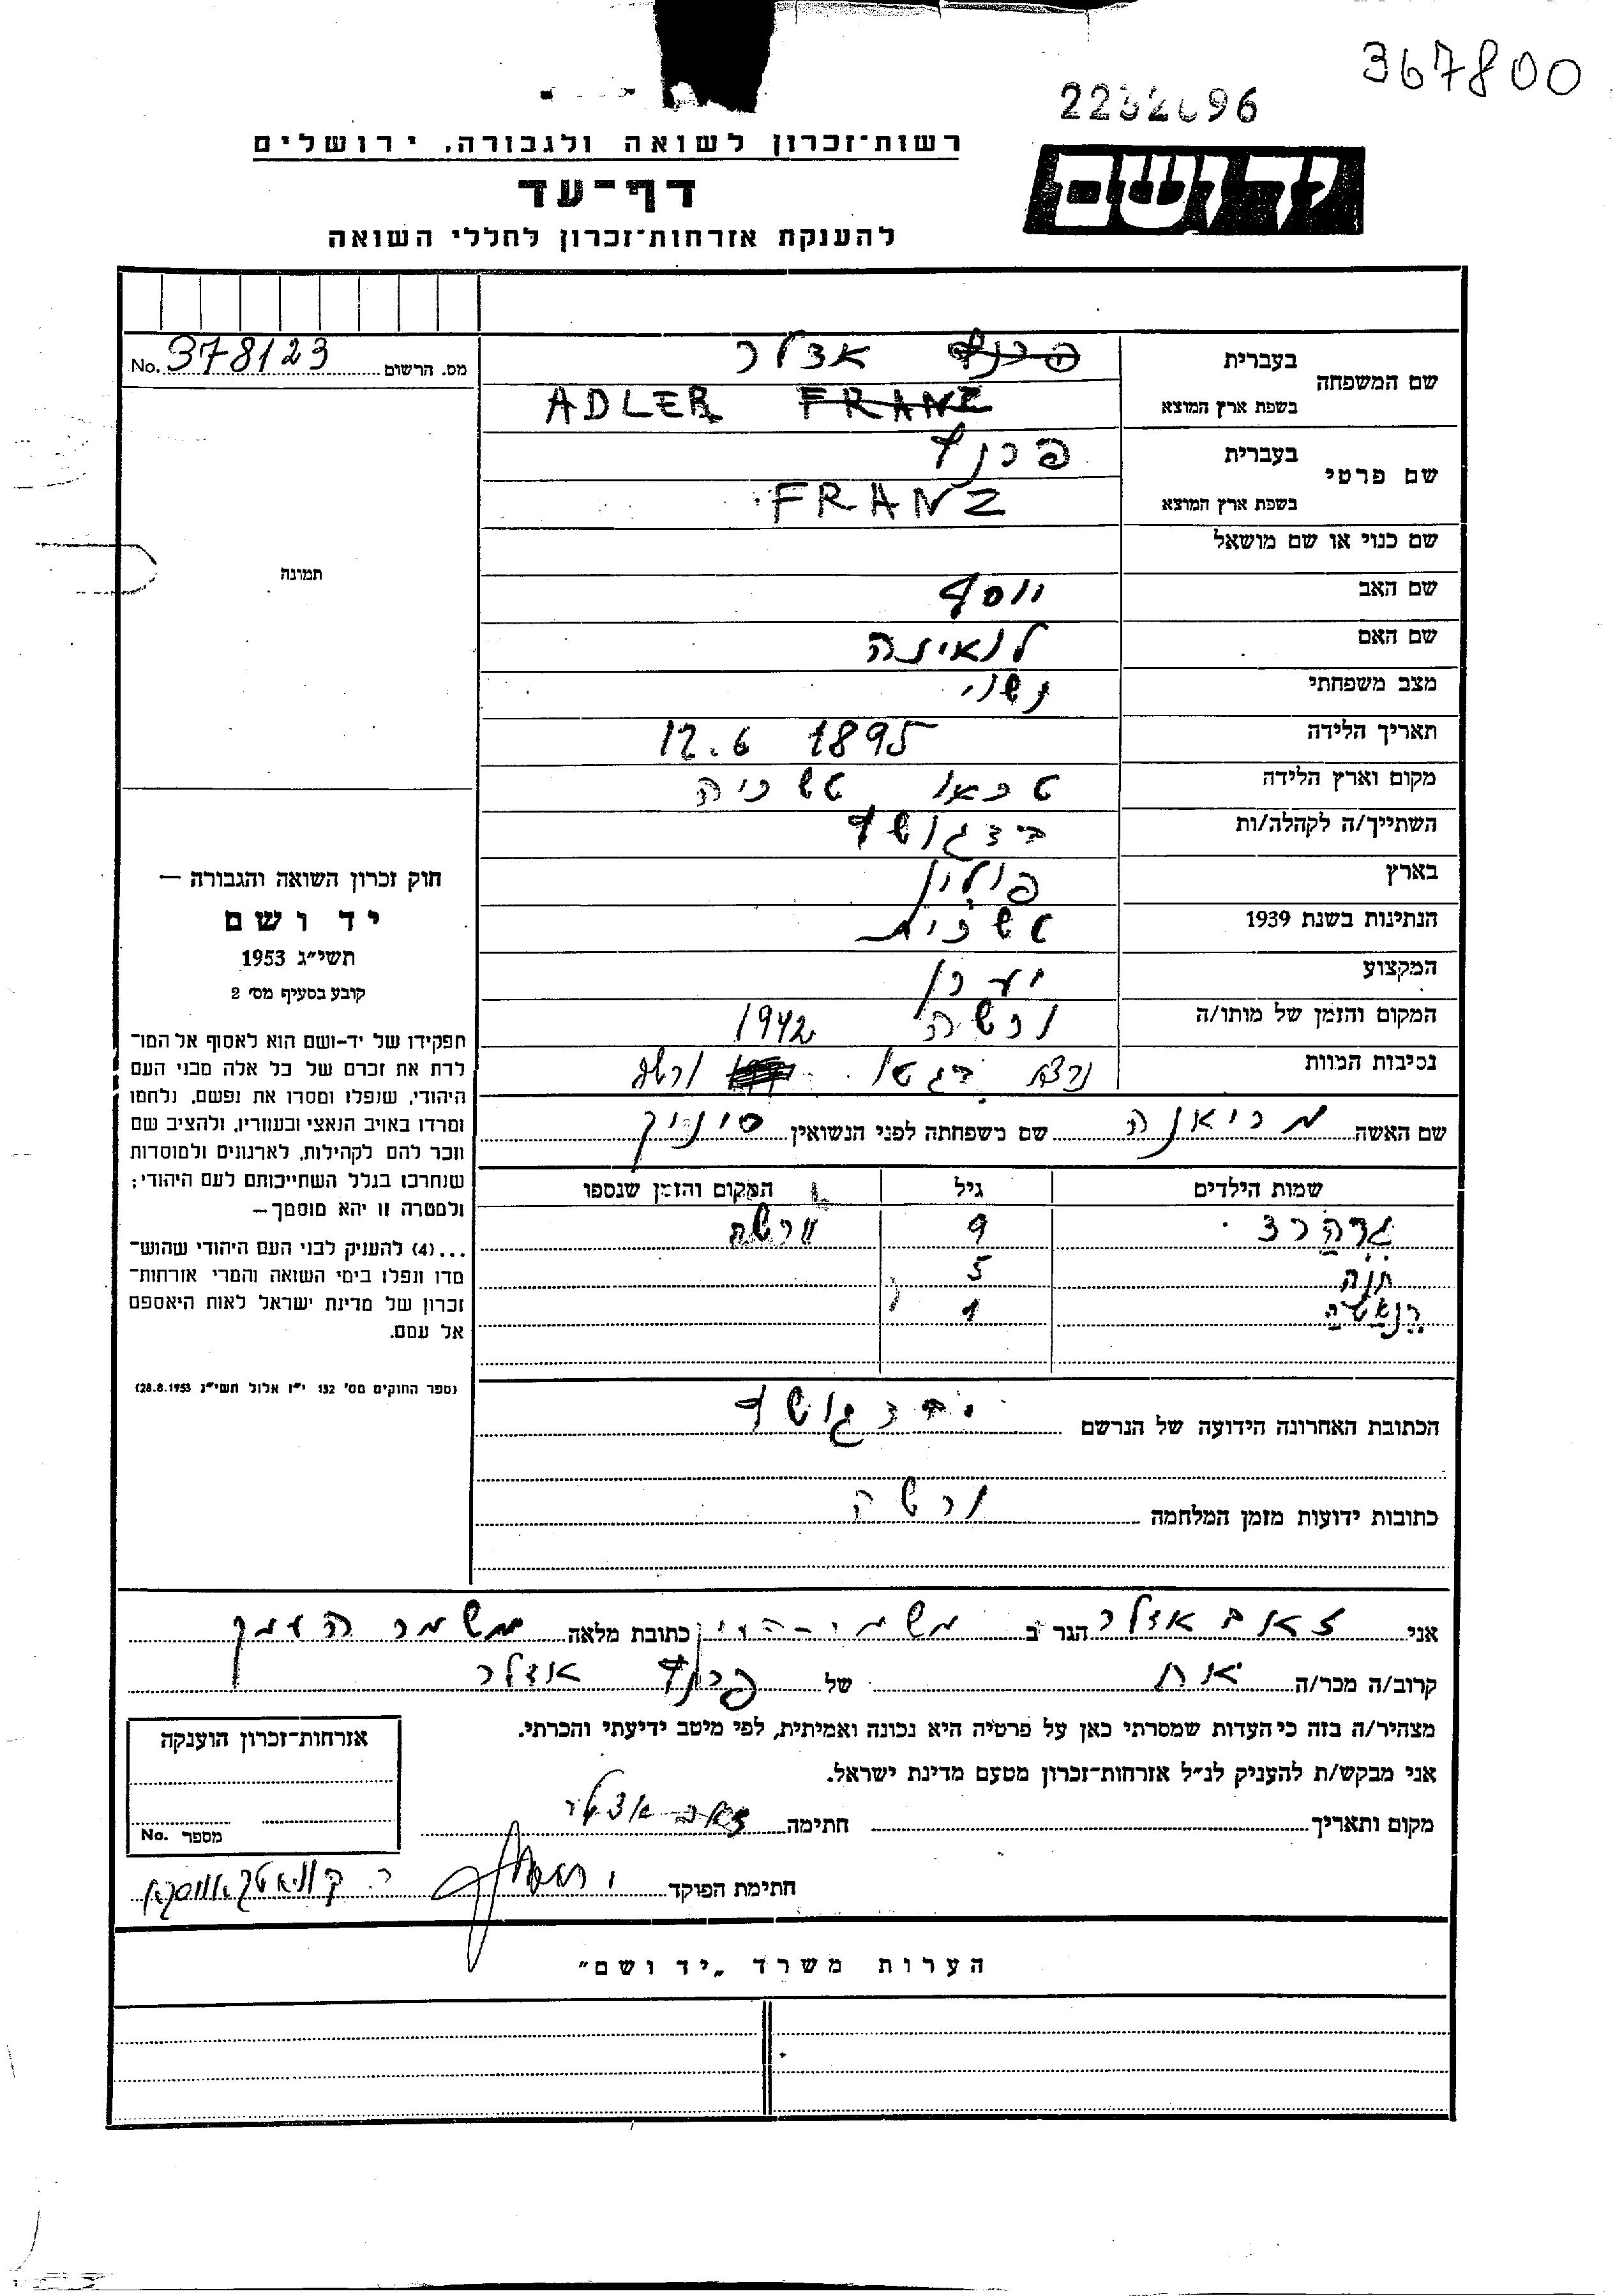 367800
96
רשות־זכרון לשואה ולגבורה, ירושלים
יד ושם
דף־עד
להענקת אזרחות־זכרון לחללי השואה
מס. הרשום 378123 No.
שם המשפחה
בעברית פרנץ אדלר
בשפת ארץ המוצא ADLER FRANZ
שם פרטי
בעברית פרנץ
בשפת ארץ המוצא FRANZ
תמונה
שם כנוי או שם מושאל
שם האב יוסף
שם האם
מצב משפחתי נשוי
תאריך הלידה 12.6 1895
מקום וארץ הלידה
השתייך/ה לקהלה/ות בידגושץ
בארץ פולין
הנתינות בשנת 1939
המקצוע יערן
המקום והזמן של מותו/ה ורשה 1942
נסיבות המוות נרצח בגטו ורשה
שם האשה מריאנה שם משפחתה לפני הנשואין
שמות הילדים גיל המקום והזמן שנספו
גרהרד 9 ורשה
חנה 5
רנאטה 1
הכתובת האחרונה הידועה של הנרשם בידגושץ
כתובות ידועות מזמן המלחמה ורשה
חוק זכרון השואה והגבורה —
יד ושם
תשי״ג 1953
קובע בסעיף מס׳ 2
תפקידו של יד-ושם הוא לאסוף אל המו־
לדת את זכרם של כל אלה מבני העם
היהודי, שנפלו ומסרו את נפשם, נלחמו
ומרדו באויב הנאצי ובעוזריו, ולהציב שם
וזכר להם לקהילות, לארגונים ולמוסדות
שנחרבו בגלל השתייכותם לעם היהודי;
ולמטרה זו יהא מוסמך—
...(4) להעניק לבני העם היהודי שהוש־
מדו ונפלו בימי השואה והמרי אזרחות־
זכרון של מדינת ישראל לאות היאספם
אל עמם.
(ספר החוקים מס׳ 132 י״ז אלול תשי״ג 28.8.1953)
אני זאב אדלר הגר ב משמר-העמק כתובת מלאה משמר העמק
קרוב/ה מכר/ה אח של פרנץ אדלר
מצהיר/ה בזה כי העדות שמסרתי כאן על פרטיה היא נכונה ואמיתית, לפי מיטב ידיעתי והכרתי.
אני מבקש/ת להעניק לנ״ל אזרחות־זכרון מטעם מדינת ישראל.
מקום ותאריך חתימה זאב אדלר
חתימת הפוקד
אזרחות־זכרון הוענקה
מספר No.
הערות משרד „יד ושם״